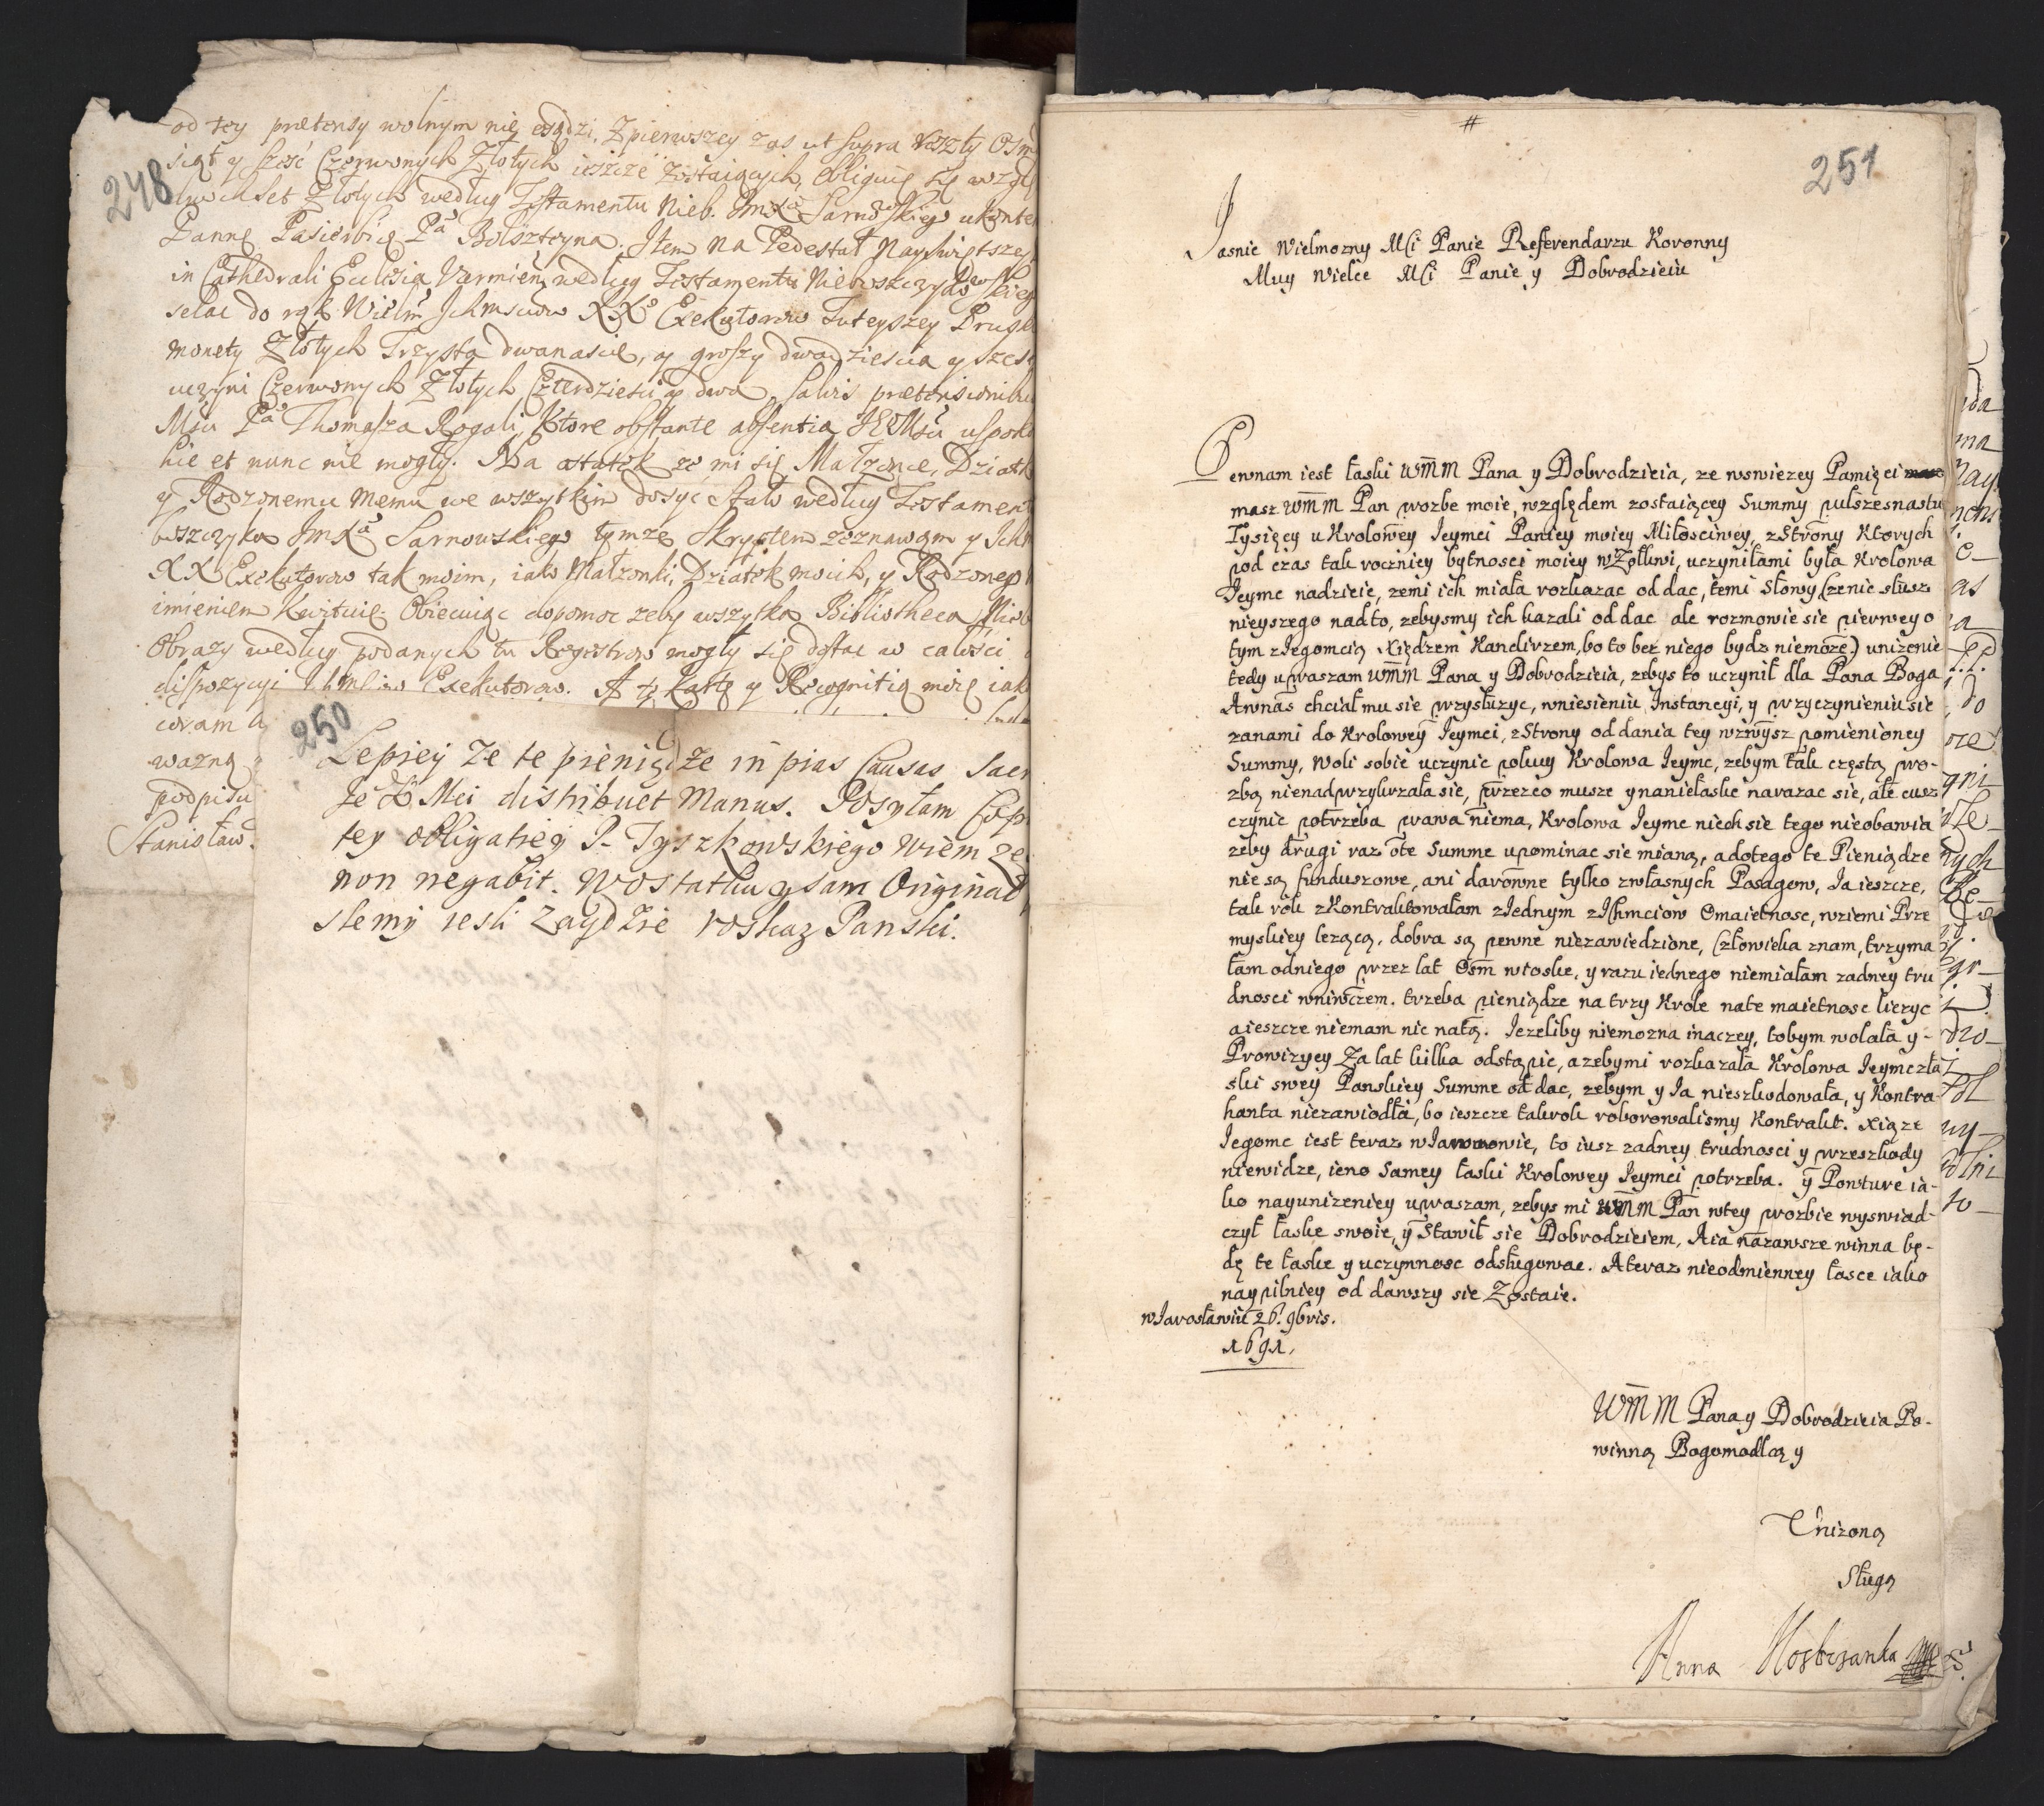 248
od tey prætensy wolnym nię osądzi. Z pierwszey zas ut supra reszty Osm
siąt y sześć Czerwonych Złotych ieszcze zostaiących, obliguię się wzglę
dwochset Złotych według Testamentu Nieb. Jmxa Sarnowskiego ukonten
Pannę Pasierbicę Pa Bolsztyna. Item na Pedestał Nayświętszey
in Cathedrali Ecclesia Varmien. według Testamentu Nieboszczykowskiego
selac do rąk Wielm Ichmsciow XX Exekutorow Tuteyszey Prusk
monety Złotych Trzysta dwanascie, y groszy dwadziescia y szesc
uczyni Czerwonych Złotych Czterdziesci y dwa, salvis prætensionibus
Msci Pa Thomasza Rogali, Ktore obstante absentia JEMsci uspoko
hic et nunc nie mogły. Na ostatek ze mi się Małzonce, Dziatk
y Rodzonemu memu we wszytkim dosyć stało według Testamen
boszczyka Jmxa Sarnowskiego tymze skryptem zeznawam y Ich
XX Exekutorow tak moim, iako Małzonki, Dziatek moich, y Rodzonego
imieniem kwituię. Obiecuiąc dopomoc zeby wszytka Bibliotheca
Obrazy według podanych tu Regestrow mogły się dostac w całosci
dispozycyi Exekutorow. A tę Kartę y Recognitią moię iako
coram
wazną
podpisu
Stanisław
250
Lepiey ze te pieniądze in pias Causas Sacr
Je X Mci distribuet Manus. Posyłam Cop
tey obligatiey P. Tyszkowskiego wiem ze
non negabit. Wostatku y sam Original
slemy iesli zaydzie roskaz Panski.
#
251
Jasnie Wielmozny MCi Panie Referendarzu Koronny
Muy Wielce MCi Panie y Dobrodzieiu
Pewnam iest łaski WMM Pana y Dobrodzieia, ze wswiezey Pamięci
masz WMM Pan prozbe moie, względem zostaiącey Summy pułszesnastu
Tysięcy u Krolowey Ieymci Paniey moiey Miłosciwey, zStrony Ktorych
pod czas tak roczniey bytnosci mоiey wZołkwi, uczyniłami była Krolowa
Ieymc nadzieie, zemi ich miała rozkazac oddac, temi słowy (zenic słusz
nieyszego nadto, zebysmy ich kazali oddac ale rozmowie sie pierwey o
tym zIegomcią Xiędzem Kanclirzem, bo to bez niego bydz niemoze) unizenie
tedy upraszam WMM Pana y Dobrodzieia, zebys to uczynił dla Pana Boga
Awnas chciał mu sie przysłuzyc, wniesieniu Instancyi, y przyczynieniu sie
zanami do Krolowey Ieymci, zStrony oddania tey wzwysz pomienioney
Summy, woli sobie uczynic pokuy Krolowa Ieymc, zebym tak częstą pro-
zbą nienadprzykrzała sie, przezco musze y naniełaske narazac sie, ale cusz
czynic potrzeba prawa niema, Krolowa Ieymc niech sie tego nieobawia
zeby drugi raz ote Summe upominac sie mianą, adotego te Pieniądze
nie są funduszowe, ani darowne tylko zwłasnych Posagow, Ia ieszcze,
tak rok zKontraktowałam zIednym zIchmciow Omaietnosc, wziemi Prze
myskiey lezącą, dobra są pewne niezawiedzione, Człowieka znam, trzyma
łam odniego przez lat Osm wioske, y razu iednego niemiałam zadney tru
dnosci wniwczem. trzeba pieniądze na trzy Krole nate maietnosc liczyc
aieszcze niemam nic natą. Iezeliby niemozna inaczey, tobym wolała y-
Prowizyey Za lat kilka odstąpic, azebymi rozkazała Krolowa Ieymczła
ski swey Panskiey Summe oddac, zebym y Ia nieszkodowała, y Kontra
hanta niezawiodła, bo ieszcze takrok roborowalismy Kontrakt. Xiąze
Iegomc iest teraz wIaworowie, to iusz zadney trudnosci y przeszkody
niewidze, ieno Samey łaski Krolowey Ieymci potrzeba. y Powture ia-
ko nayunizeniey upraszam, zebys mi WMM Pan wtey prozbie wyswiad-
czył łaske swoie, y Stawił sie Dobrodzieiem, Aia nazawsze winna bę-
dę te łaske y uczynnosc odsługowac. Ateraz nieodmienney łasce iako
naypilniey oddawszy sie Zostaie.
wIarosławiu 26. 9bris.
1691,
WMM Pana y Dobrodzieia Po-
winną Bogomodlcą y
Unizoną
Sługą
Anna Kostczanka